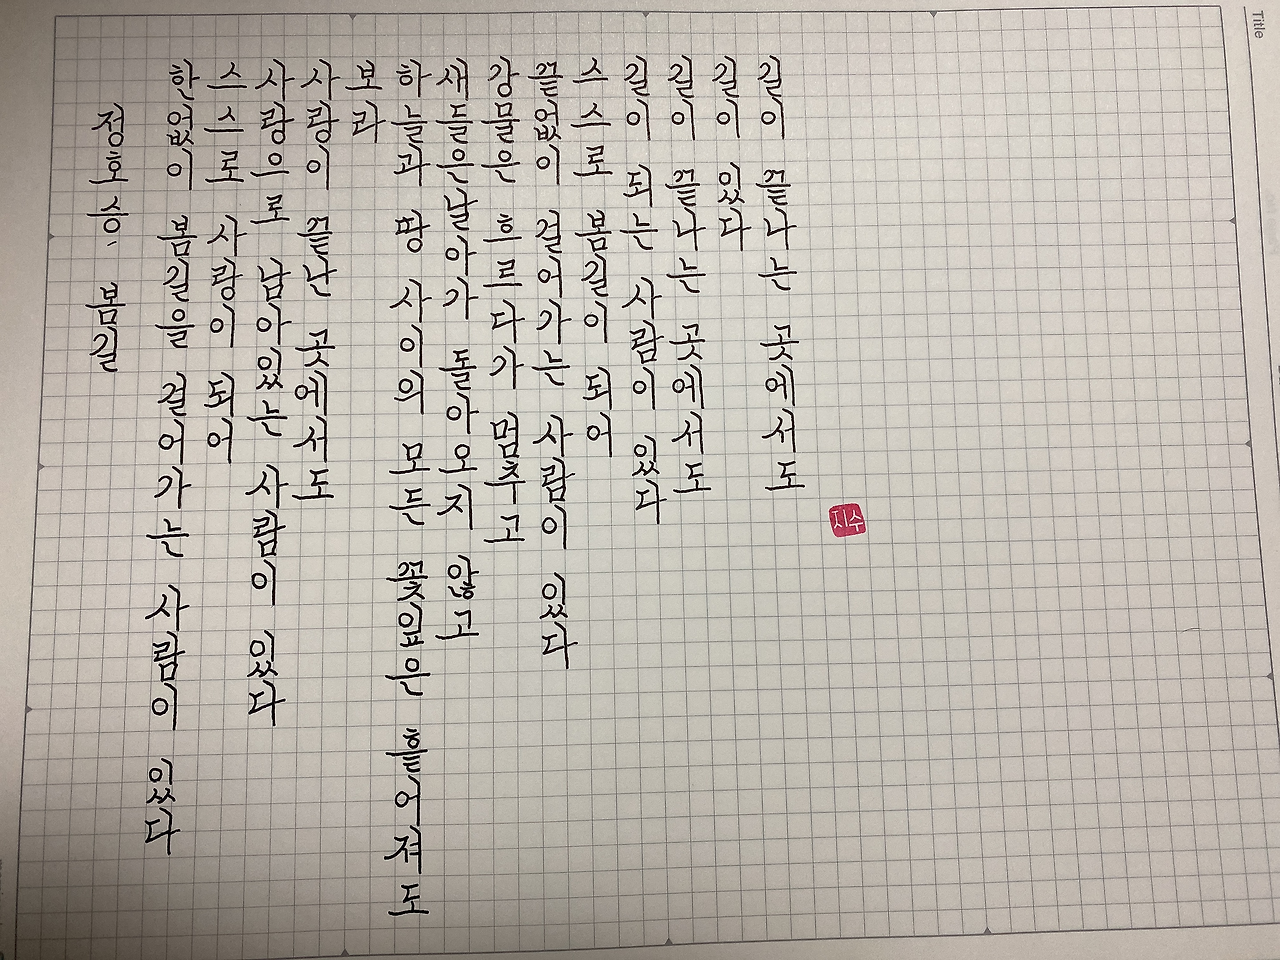 Title
길이 끝나는 곳에서도
길이 있다
길이 끝나는 곳에서도
길이 되는 사람이 있다
스스로 봄길이 되어
끝없이 걸어가는 사람이 있다
강물은 흐르다가 멈추고
새들은 날아가 돌아오지 않고
하늘과 땅 사이의 모든 꽃잎은 흩어져도
보라
사랑이 끝난 곳에서도
사랑으로 남아있는 사람이 있다
스스로 사랑이 되어
한없이 봄길을 걸어가는 사람이 있다
정호승. 봄길
지수